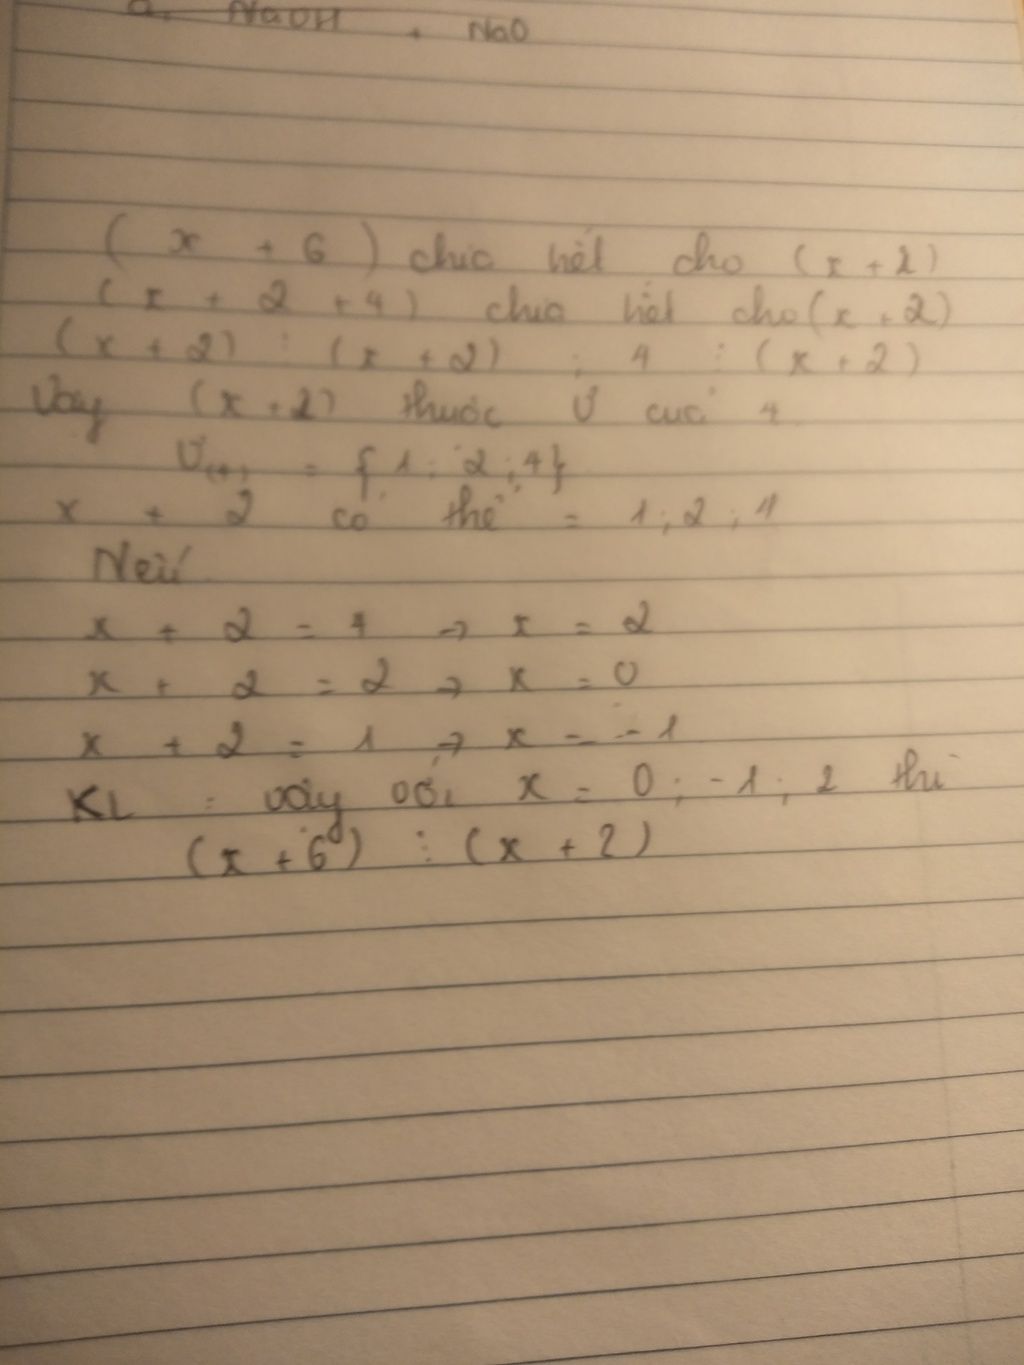 a. NaOH + NaO
( x + 6 ) chia hết cho (x + 2)
(x + 2 + 4) chia hết cho (x + 2)
(x + 2) ⋮ (x + 2) ; 4 ⋮ (x + 2)
Vậy (x + 2) thuộc Ư của 4
Ư(4) = { 1 ; 2 ; 4}
x + 2 có thể = 1 ; 2 ; 4
Nếu
x + 2 = 4 → x = 2
x + 2 = 2 → x = 0
x + 2 = 1 → x = -1
KL : vậy với x = 0 ; -1 ; 2 thì
(x + 6) ⋮ (x + 2)